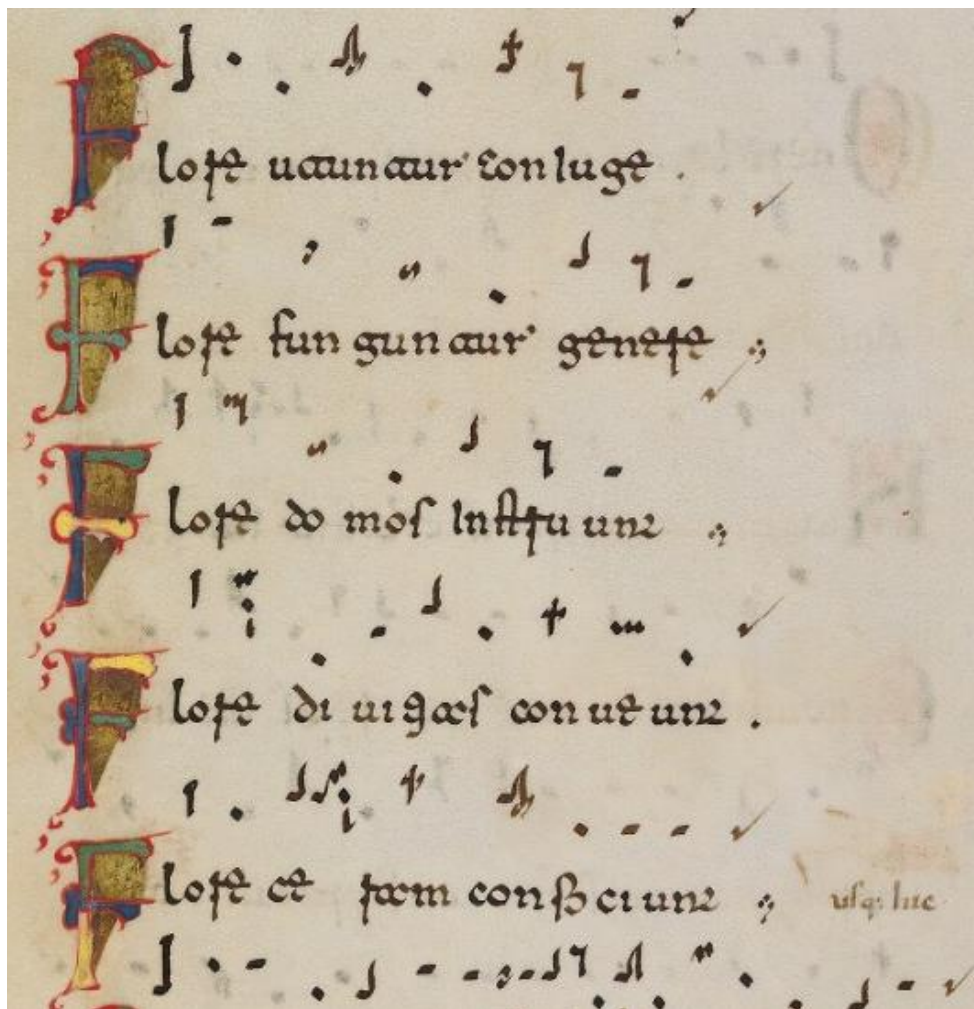 Flore utuntur coniuge .
Flore funguntur genere ;
Flore domos instruunt ;
Flore divitias conveunt .
Flore ceram conficiunt ; usq; huc